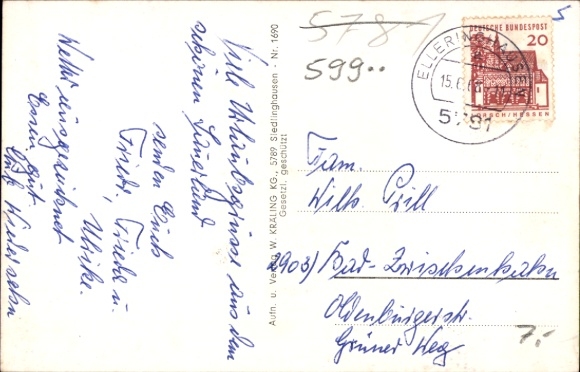 Viele Urlaubsgrüsse aus dem
schönen Sauerland
senden Euch
Friedr., Frieda u.
Ulrike.
Wetter ausgezeichnet
Essen gut.
Auf Wiedersehn
Aufn. u. Verlag W. KRÄLING KG., 5789 Siedlinghausen - Nr. 1690
Gesetzl. geschützt
5781
599..
ELLERINGHAUSEN
15.6.6
5781
DEUTSCHE BUNDESPOST
20
LORSCH/HESSEN
5
Fam.
Wilh. Prill
2903) Bad-Zwischenahn
Oldenburgerstr.
Grüner Weg
7,-